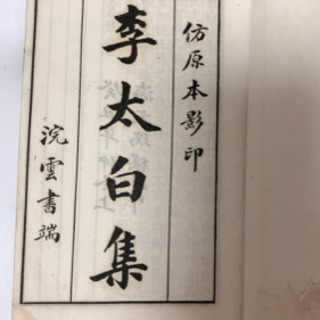 仿原本影印
李太白集
浣雲書端